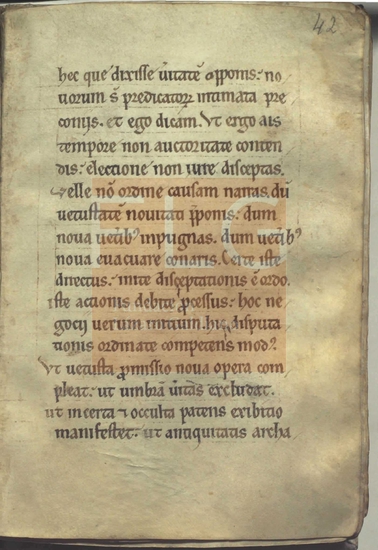 42
hec que dixisse ũitatẽ opponis: no
uorum s̃ predicatoꝝ intimata pre
conijs. et ego dicam. Vt ergo ais
tempore non auctoritate conten
dis: electione non iure disceptas.
Velle nõ ordine causam narras. dũ
uetustatẽ nouitati p̃ponis: dum
nova uetibꝰ inpugnas. dum uetibꝰ
noua euacuare conaris. Certe iste
directus: inite disceptationis ẽ ordo.
iste actionis debite p̃cessus: hoc ne
gocij uerum initium. hic disputa
tionis ordinate competens modꝰ.
Vt uetusta p̃missio noua opera com
pleat: ut umbrã ũitas excludat.
ut incerta ⁊ occulta patens exibitio
manifestet. ut antiquitatis archa